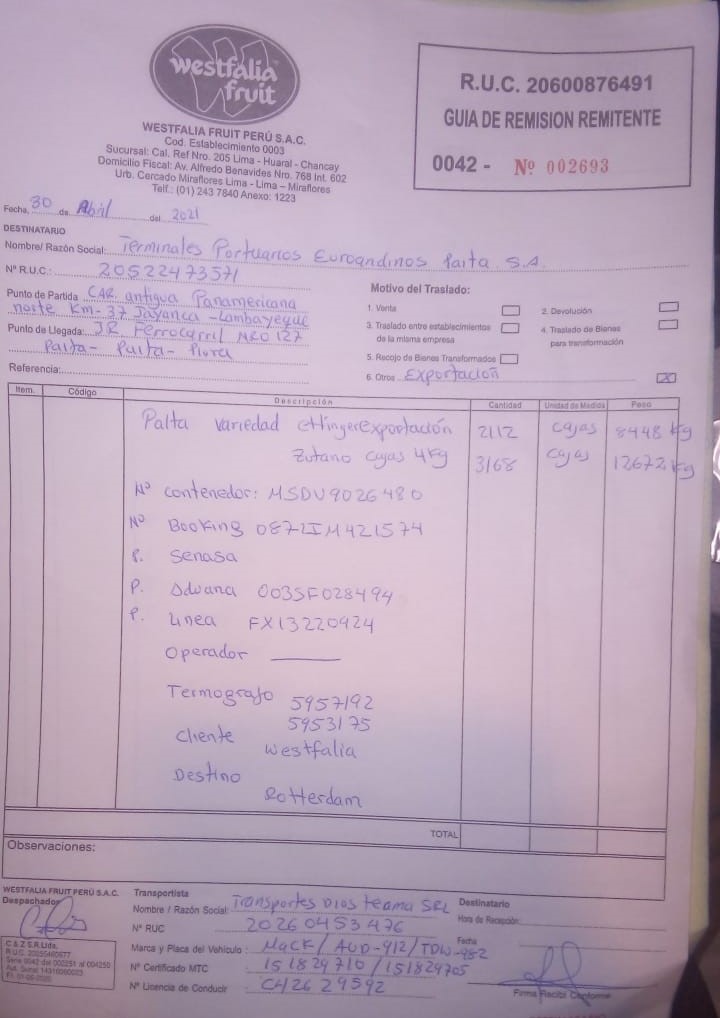 westfalia
fruit
WESTFALIA FRUIT PERÚ S.A.C.
Cod. Establecimiento 0003
Sucursal: Cal. Ref Nro. 205 Lima - Huaral - Chancay
Domicilio Fiscal: Av. Alfredo Benavides Nro. 768 Int. 602
Urb. Cercado Miraflores Lima - Lima – Miraflores
Telf.: (01) 243 7840 Anexo: 1223
R.U.C. 20600876491
GUIA DE REMISION REMITENTE
0042 - Nº 002693
Fecha, 30 de Abril del 2021
DESTINATARIO
Nombre/ Razón Social: Terminales Portuarios Euroandinos Paita S.A.
Nº R.U.C.: 20522473571
Punto de Partida CAR. antigua Panamericana
norte Km-37 Jayanca-Lambayeque
Punto de Llegada: JR Ferrocarril NRO 127
Paita- Paita- Piura
Referencia:
Motivo del Traslado:
1. Venta
2. Devolución
3. Traslado entre establecimientos
de la misma empresa
4. Traslado de Bienes
para transformación
5. Recojo de Bienes Transformados
6. Otros Exportación X
Item. Código Descripción Cantidad Unidad de Medida Peso
Palta variedad ettinger Exportación 2112 cajas 8448 kg
Zutano cajas 4kg 3168 cajas 12672 kg
Nº contenedor: MSDU9026480
Nº Booking 087LIM421574
P. Senasa
P. Aduana 003SF028494
P. Linea FX13220924
Operador
Termografo 5957192
5953175
Cliente
Westfalia
Destino
Rotterdam
TOTAL
Observaciones:
WESTFALIA FRUIT PERÚ S.A.C.
Despachador
C & Z S.R.Ltda.
Serie 0042 del 002251 al 004250
Transportista
Nombre / Razón Social: Transportes Dios Teama SRL
Nº RUC 20260453476
Marca y Placa del Vehículo: Mack/ AUD-912/TDW-982
Nº Certificado MTC 151829710 / 151829705
Nº Licencia de Conducir C42629592
Destinatario
Hora de Recepción:
Fecha
Firma Recibí Conforme